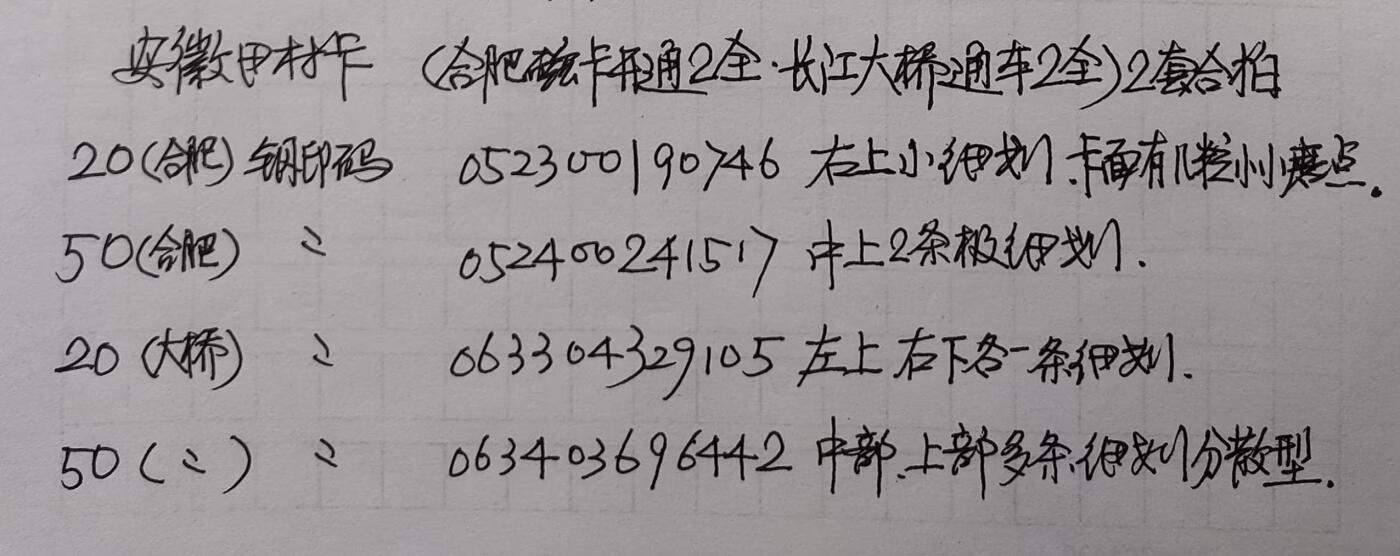 安徽田村卡 (合肥磁卡开通2全·长江大桥通车2全)2套合拍
20(合肥)钢印码 052300190746 右上小细划.卡面有几粒小小麻点.
50(合肥) 〃 052400241517 中上2条极细划.
20(大桥) 〃 063304329105 左上右下各一条细划.
50(〃) 〃 063403696442 中部.上部多条细划分散型.